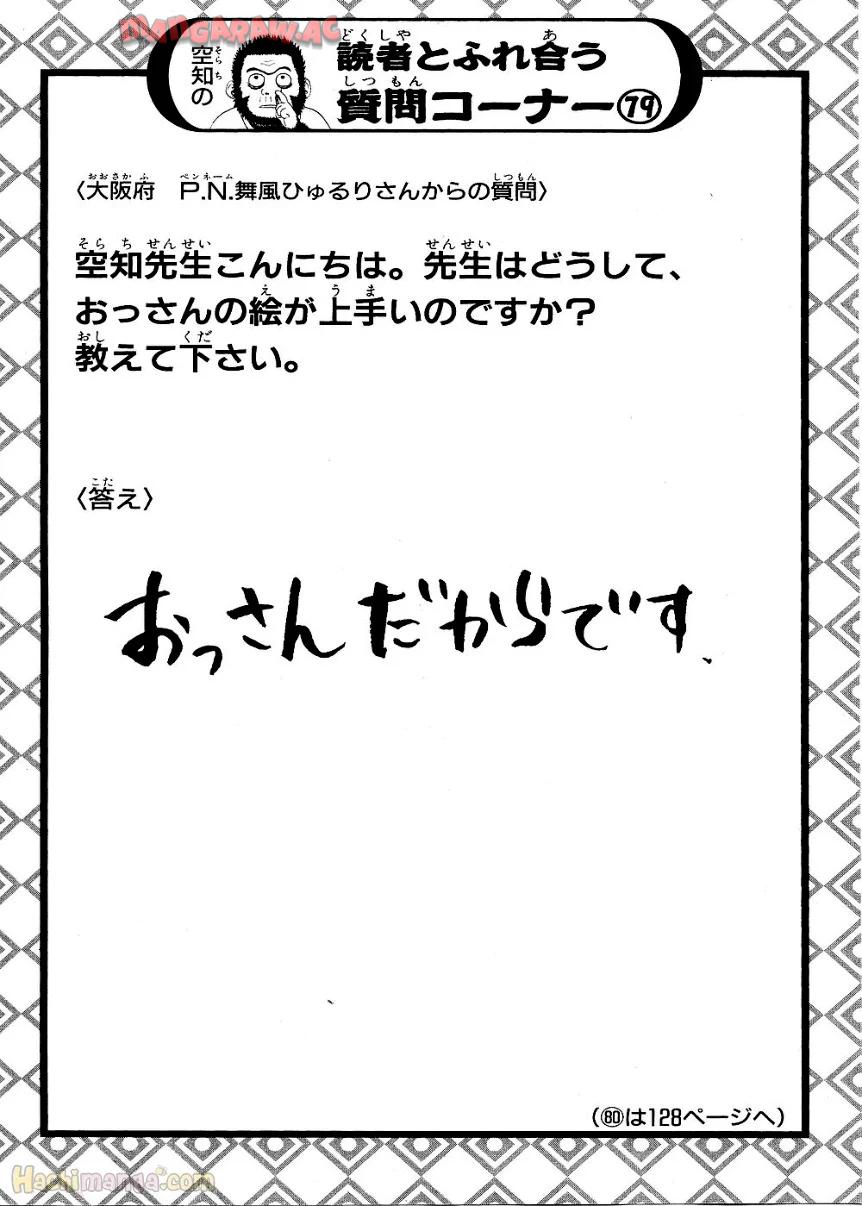 MANGARAW.AC
空知の
読者とふれ合う
質問コーナー79
〈大阪府　P.N.舞風ひゅるりさんからの質問〉
空知先生こんにちは。先生はどうして、
おっさんの絵が上手いのですか？
教えて下さい。
〈答え〉
おっさんだからです、
（80は128ページへ）
Hachimanga.com